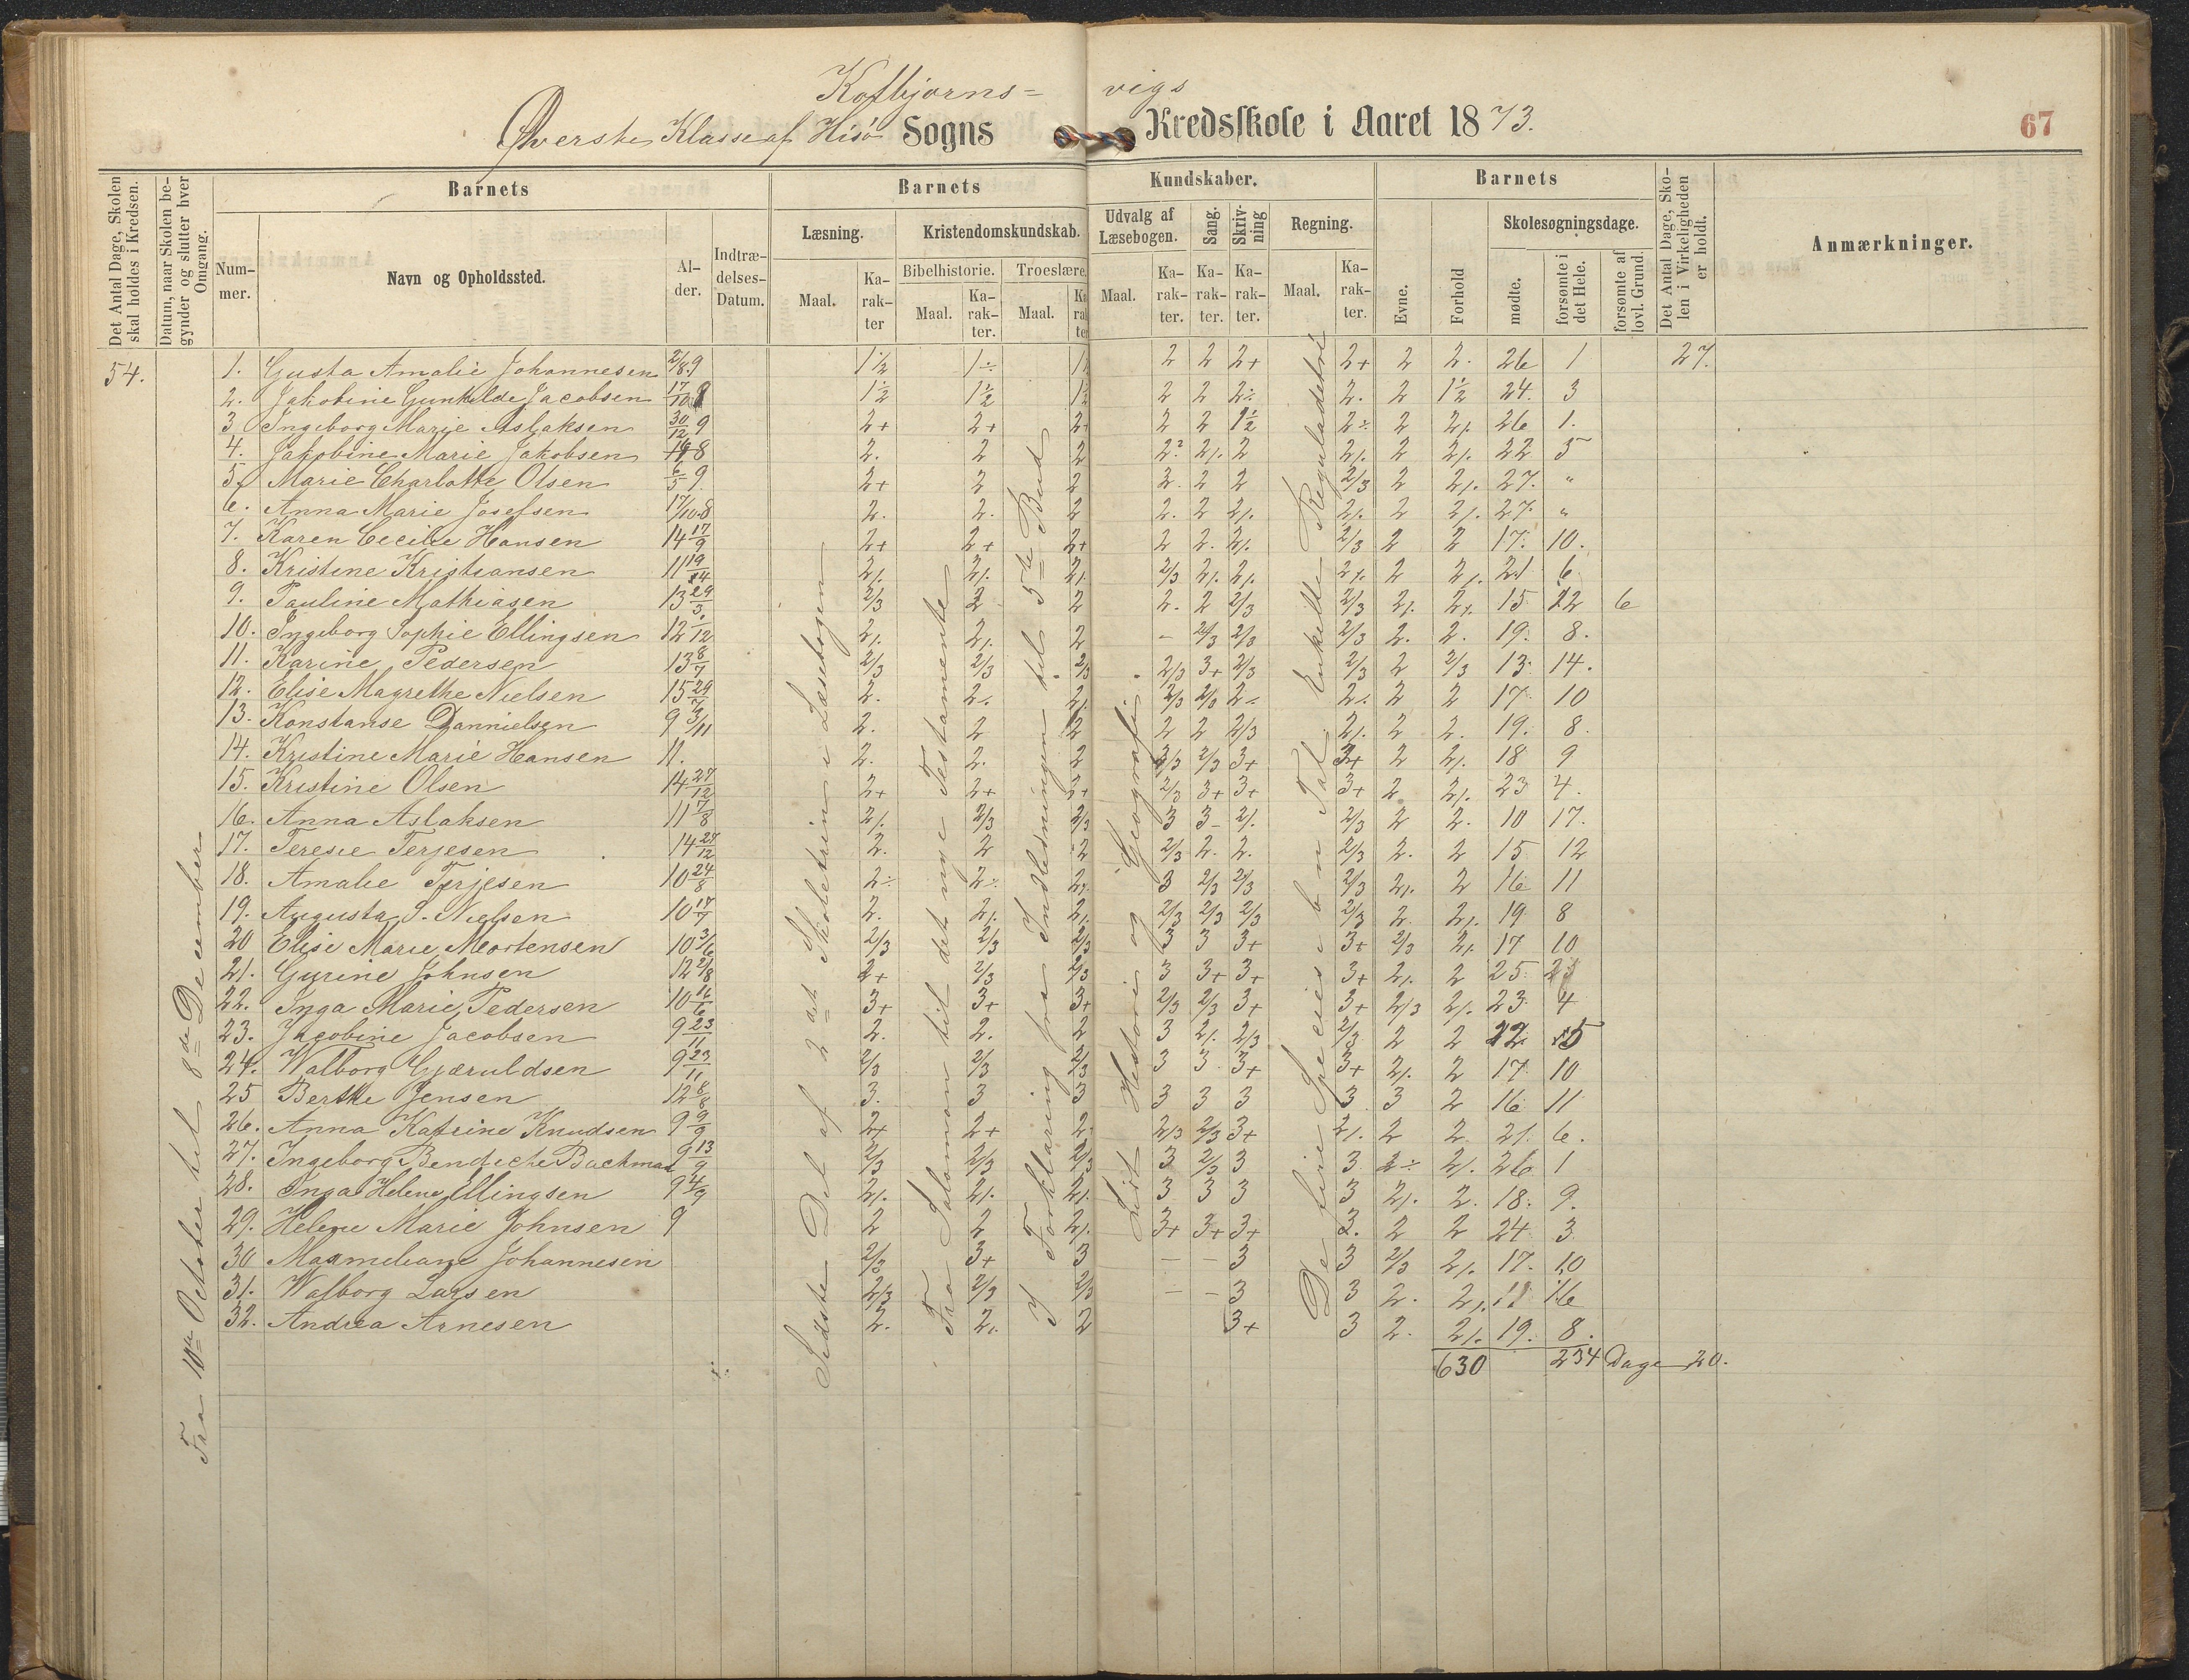 Kolbjørns= vigs
Øverste Klasse af Hisø Sogns Kredsskole i Aaret 1873.
67
Det Antal Dage, Skolen skal holdes i Kredsen.
Datum, naar Skolen begynder og slutter hver Omgang.
Barnets
Barnets Kundskaber.
Barnets
Det Antal Dage, Skolen i Virkeligheden er holdt.
Anmærkninger.
Nummer.
Navn og Opholdssted.
Alder.
Indtrædelses-Datum.
Læsning.
Kristendomskundskab.
Udvalg af Læsebogen.
Sang.
Skrivning
Regning.
Evne.
Forhold
Skolesøgningsdage.
Bibelhistorie.
Troeslære.
Maal. Karakter Maal. Karakter. Maal. Karakter. Maal. Karakter. Karakter. Karakter. Maal. Karakter.
mødte.
forsømte i det Hele.
forsømte af lovl. Grund.
54.
Fra 10de October til 8de December
Sidste Del af 2det Skoletrin i Læsebogen
Fra Salomon til det nye Testamente
I Forklaring fra Indledningen til 5te Bud.
Lidt Historie og Geografi.
De fire Species i b n Tal Enkelte Reguladetri
1. Gusta Amalie Johannesen 2/8 9 1½ 1÷ 1½ 2 2 2+ 2+ 2 2. 26 1 27.
2. Jakobine Gunhilde Jacobsen 17/10 8 1½ 1½ 1½ 2 2 2÷ 2. 2 1½ 24. 3
3 Ingeborg Marie Aslaksen 30/12 9 2+ 2+ 2+ 2 2 1½ 2÷ 2 2/. 26 1.
4. Jakobine Marie Jakobsen 8 2. 2 2 2? 2/. 2 2/. 2 2/. 22 5
5. Marie Charlotte Olsen 6/5 9. 2+ 2 2 2. 2 2 2/3 2 2/. 27. "
6. Anna Marie Josefsen 17/10 8 2. 2. 2 2. 2 2/. 2/. 2 2/. 27. "
7. Karen Cecilie Hansen 14 17/9 2+ 2+ 2+ 2 2. 2/. 2/3 2 2 17. 10.
8. Kristine Kristiansen 11 19/4 2/. 2/. 2/. 2/3 2/. 2/. 2/. 2 2/. 21 6
9. Pauline Mathiasen 13 29/3 2/3 2 2 2. 2 2/3 2/3 2/. 2/. 15 12 6
10. Ingeborg Sophie Ellingsen 12 /12 2/. 2/. 2 – 2/3 2/3 2/3 2. 2. 19. 8.
11. Karine Pedersen 13 8/7 2/3 2/3 2/3 2/3 3+ 2/3 2/3 2 2/3 13. 14.
12. Elise Magrethe Nielsen 15 29/7 2. 2/. 2/. 2/3 2/3 2÷ 2/. 2 2 17. 10
13. Konstanse Dannielsen 9 3/11 2. 2 2 2 2 2/3 2/. 2 2. 19. 8.
14. Kristine Marie Hansen 11. 2. 2. 2 3/3 2/3 3+ 3+ 2 2/. 18 9
15. Kristine Olsen 14 27/12 2+ 2+ 2+ 2/3 3+ 3+ 3+ 2 2/. 23 4.
16. Anna Aslaksen 11 7/8 2/. 2/3 2/3 3 3– 2/. 2/3 2 2. 10 17.
17. Teresie Terjesen 14 27/12 2. 2 2 2/3 2. 2. 2/3 2. 2 15 12
18. Amalie Terjesen 10 24/8 2÷ 2÷ 2/. 3 2/3 2/3 2/3 2/. 2 16 11
19. Augusta S. Nielsen 10 17/7 2. 2/. 2/. 2/3 2/3 2/3 2/3 2. 2/. 19 8
20 Elise Marie Mortensen 10 3/6 2/3 2/3 2/3 3 3 3+ 3+ 2/3 2/. 17 10
21. Gurine Johnsen 12 2/8 2+ 2/3 2/3 3 3+ 3+ 3+ 2/. 2 25
22. Inga Marie Pedersen 10 16/6 3+ 3+ 3+ 2/3 2/3 3+ 3+ 2/3 2/. 23 4
23. Jacobine Jacobsen 9 23/11 2. 2. 2 3 2/. 2/3 2/3 2 2 22 5
24. Walborg Gjæruldsen 9 23/11 2/3 2/3 2/3 3 3 3+ 3+ 2/. 2 17 10
25 Berthe Jensen 12 8/8 3. 3 3 3 3 3 3 3 2 16 11
26. Anna Katrine Knudsen 9 9/9 2+ 2+ 2 2/3 2/3 3+ 2/. 2 2 21. 6.
27. Ingeborg Bendicte Buckman 9 13/9 2/3 2/3 2/3 3 2/3 3 3 2÷ 2/. 26 1
28. Inga Helene Ellingsen 9 4/9 2/. 2/. 2/. 3 3 3 3 2/. 2. 18. 9.
29. Helene Marie Johnsen 9 2 2 2/. 3+ 3+ 3+ 3. 2 2 24 3
30 Maxmeliane Johannesen 2/3 3+ 3 – – 3 3 2/3 2/. 17. 10
31. Walborg Larsen 2/3 2/3 2/3 – – 3 3 2. 2/. 11 16
32. Andrea Arnesen 2. 2/. 2 3+ 3 2. 2/. 19. 8.
630 234 Dage 20.